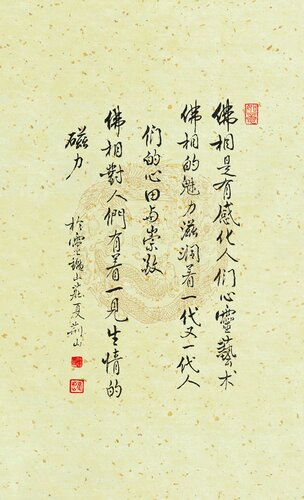 佛相是有感化人们心靈藝术
佛相的魅力滋润着一代又一代人
们的心田与崇敬
佛相對人們有着一見生情的
磁力
於雲 山莊夏荆山